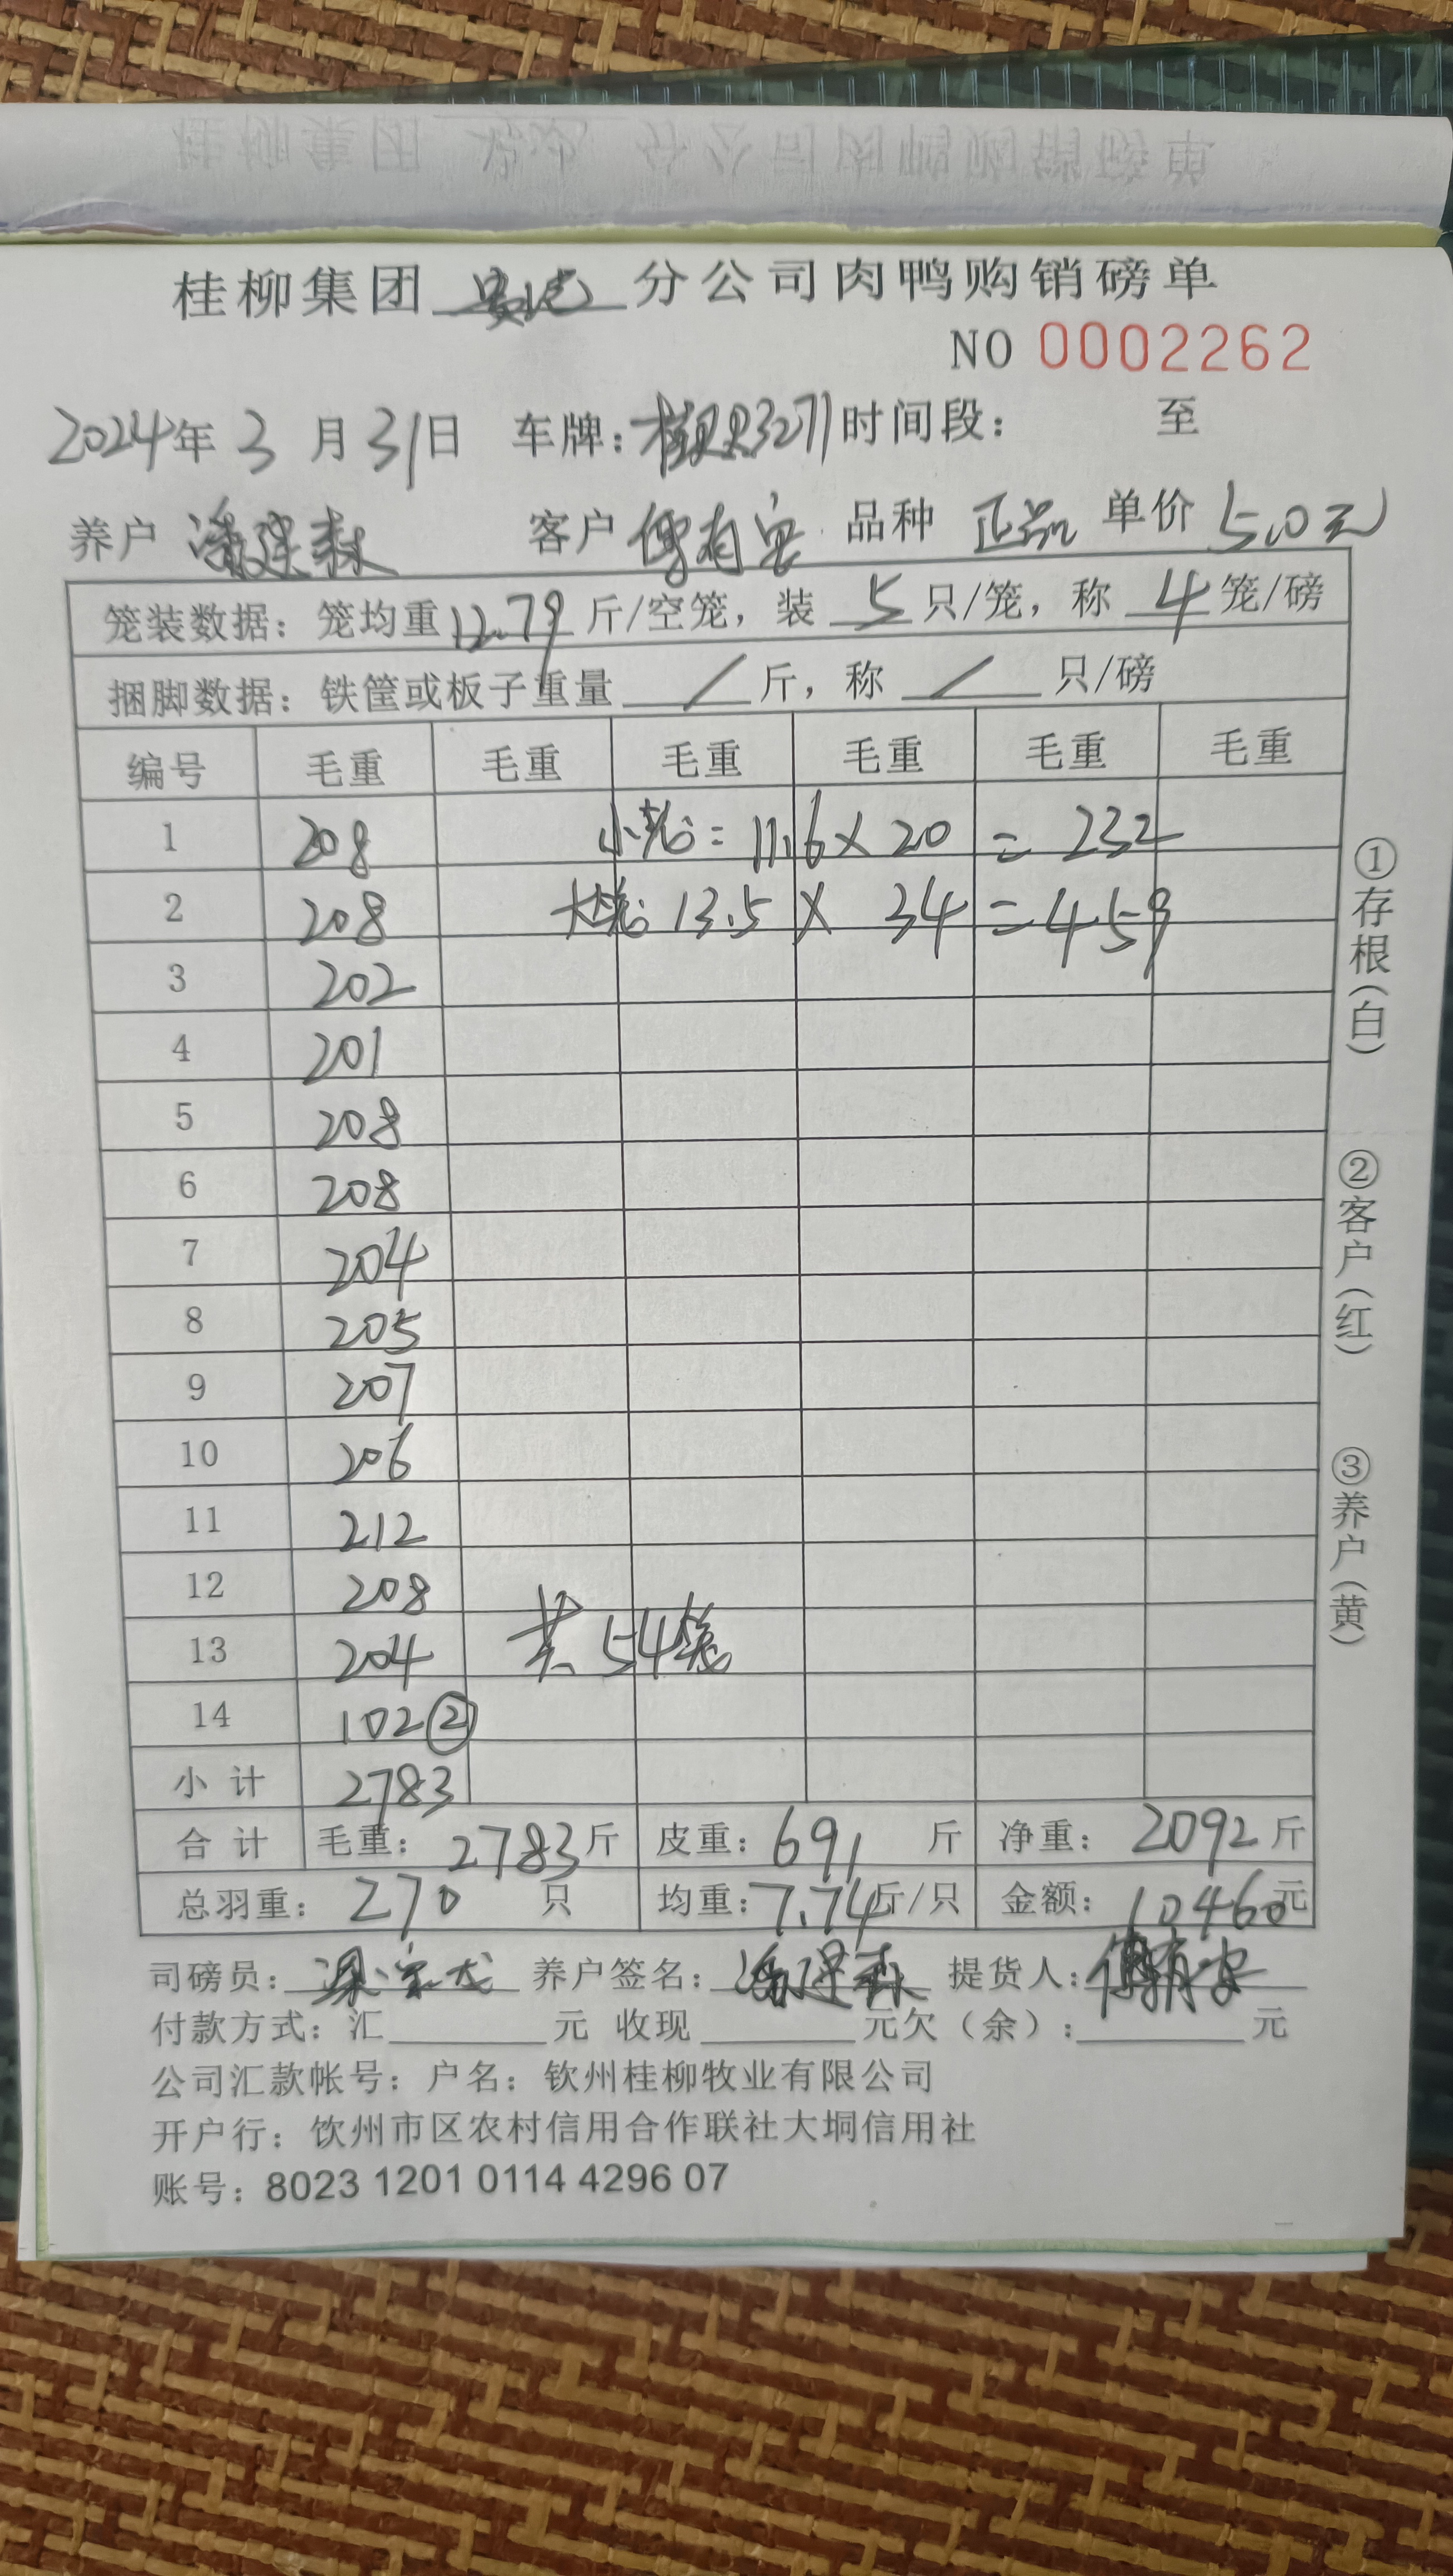 桂柳集团 分公司肉鸭购销磅单
NO 0002262
2024年 3 月 31日 车牌: 3271 时间段: 至
养户 潘建森 客户 傅有安 品种 正品 单价 5.0元
笼装数据: 笼均重 12.79 斤/空笼, 装 5 只/笼, 称 4 笼/磅
捆脚数据: 铁筐或板子重量 / 斤, 称 / 只/磅
编号 毛重 毛重 毛重 毛重 毛重 毛重
1 208 小笼: 11.6 × 20 = 232
2 208 大笼: 13.5 × 34 = 459
3 202
4 201
5 208
6 208
7 204
8 205
9 207
10 206
11 212
12 208
13 204 共 54笼
14 102②
小计 2783
合计 毛重: 2783 斤 皮重: 691 斤 净重: 2092 斤
总羽重: 270 只 均重: 7.74 斤/只 金额: 10460元
司磅员: 养户签名: 潘建森 提货人: 傅有安
付款方式: 汇 元 收现 元欠(余): 元
公司汇款帐号: 户名: 钦州桂柳牧业有限公司
开户行: 饮州市区农村信用合作联社大垌信用社
账号: 8023 1201 0114 4296 07
①存根(白)
②客户(红)
③养户(黄)